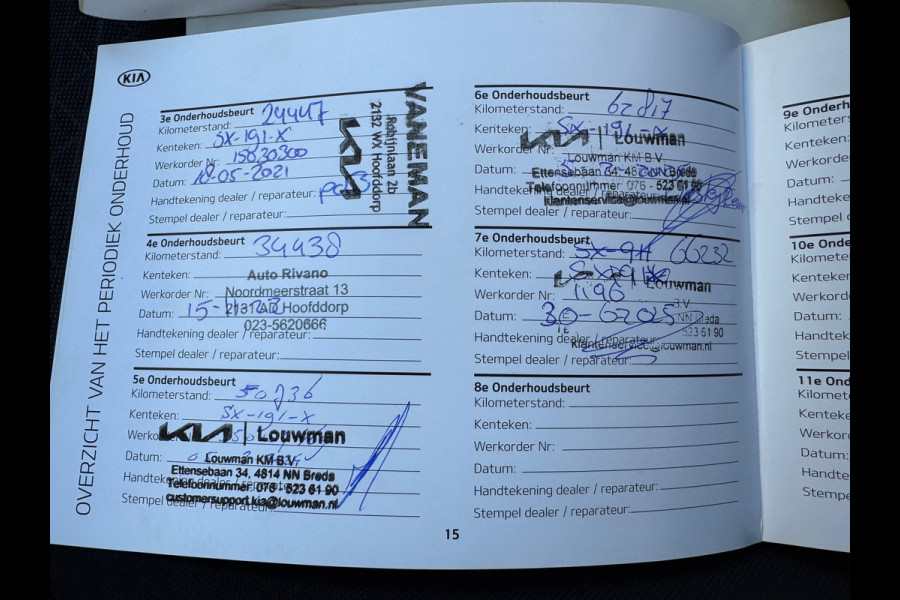 KIA
OVERZICHT VAN HET PERIODIEK ONDERHOUD
3e Onderhoudsbeurt
Kilometerstand: 24447
Kenteken: SX-191-X
Werkorder Nr: 15830300
Datum: 18-05-2021
Handtekening dealer / reparateur:
Stempel dealer / reparateur:
VANEMAN
Robijnlaan 2b
2132 WX Hoofddorp
KIA
4e Onderhoudsbeurt
Kilometerstand: 34438
Kenteken:
Werkorder Nr:
Datum: 15-
Handtekening dealer / reparateur:
Stempel dealer / reparateur:
Auto Rivano
Noordmeerstraat 13
2131 AD Hoofddorp
023-5620666
5e Onderhoudsbeurt
Kilometerstand: 50236
Kenteken: SX-191-X
Datum:
Stempel dealer / reparateur:
KIA | Louwman
Louwman KM B.V.
Ettensebaan 34, 4814 NN Breda
Telefoonnummer: 076 - 523 61 90
customersupport.kia@louwman.nl
6e Onderhoudsbeurt
Kilometerstand: 62817
Kenteken: SX-191-X
Werkorder Nr:
Datum:
Handtekening dealer / reparateur:
Stempel dealer / reparateur:
KIA | Louwman
Louwman KM B.V.
Ettensebaan 34, 4814 NN Breda
Telefoonnummer: 076 - 523 61 90
klantenservice@louwman.nl
7e Onderhoudsbeurt
Kilometerstand: SX-91 66232
Kenteken:
Werkorder Nr: 1196
Datum: 30-6-2025
Handtekening dealer / reparateur:
Stempel dealer / reparateur:
Louwman
NN Breda
523 61 90
klantenservice@louwman.nl
8e Onderhoudsbeurt
Kilometerstand:
Kenteken:
Werkorder Nr:
Datum:
Handtekening dealer / reparateur:
Stempel dealer / reparateur:
15
9e Onderh
Kilometers
Kenteken:
Werkorde
Datum:
Handteke
Stempel
10e Onde
Kilomete
Kenteken
Werkord
Datum:
Handtek
Stempel
11e Ond
Kilomet
Kentek
Werkor
Datum:
Handte
Stemp